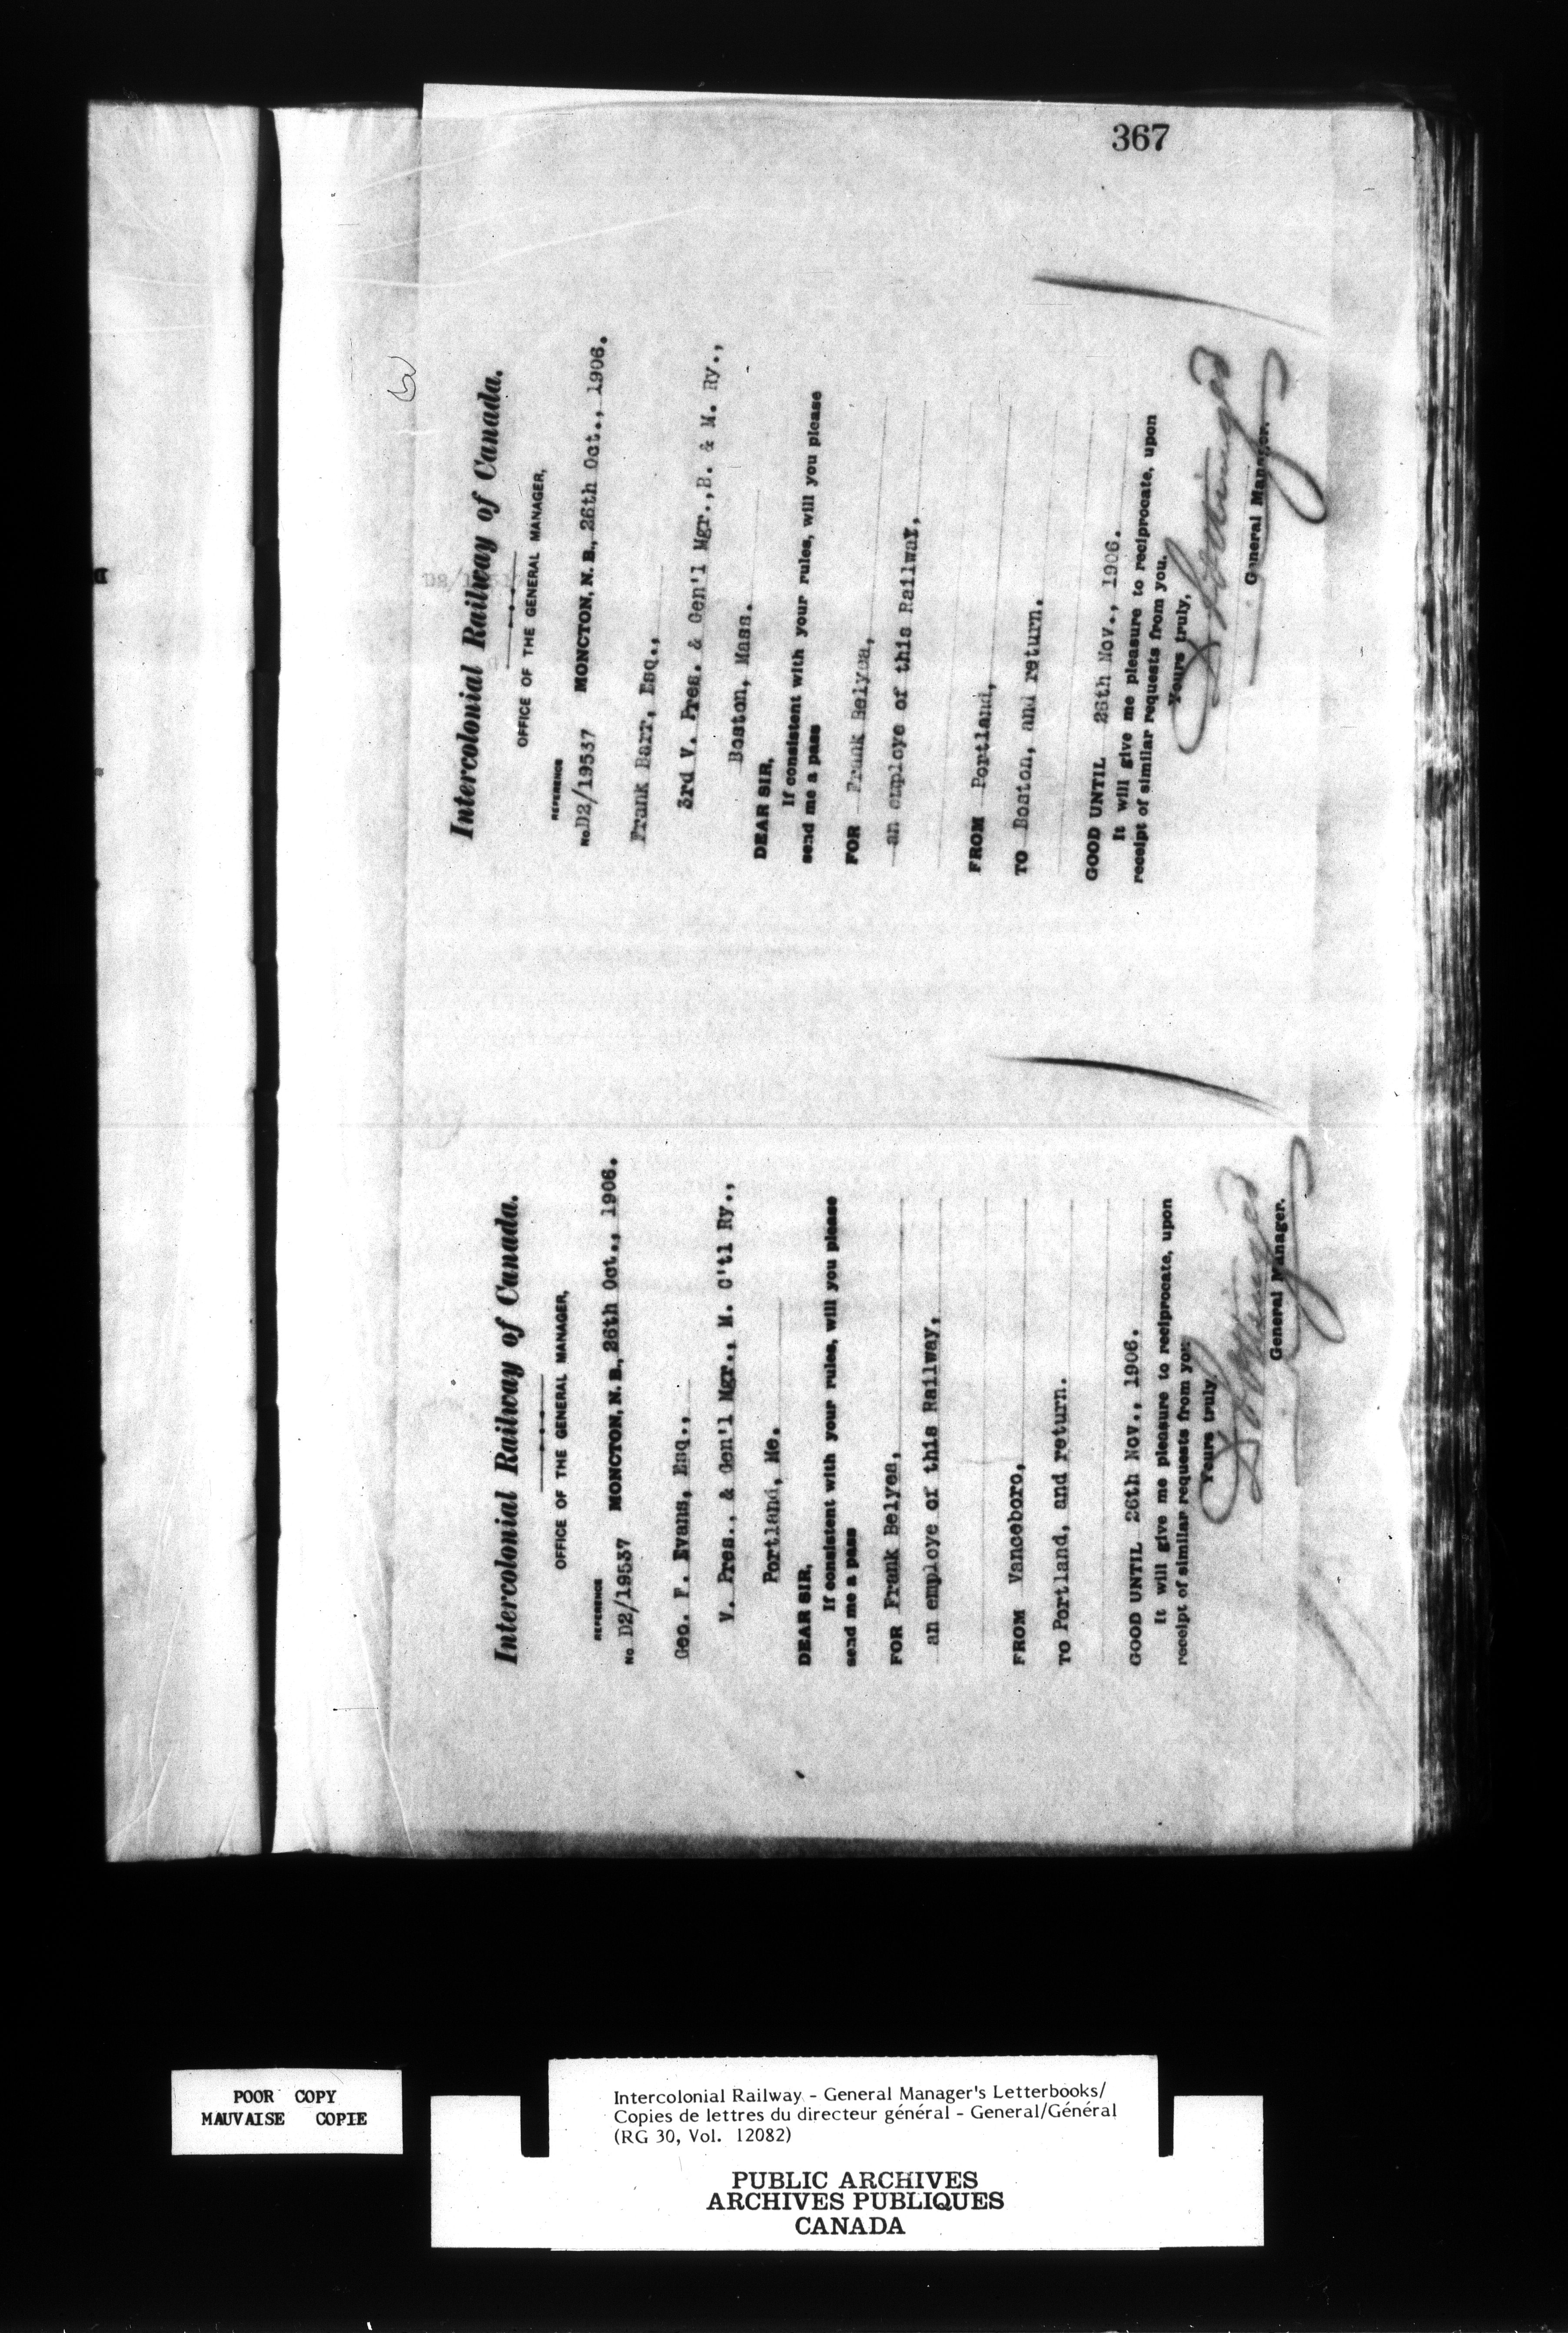 367
Intercolonial Railway of Canada.
OFFICE OF THE GENERAL MANAGER,
REFERENCE
No D2/19537 MONCTON, N. B., 26th Oct., 1906.
Geo. F. Evans, Esq.,
V. Pres., & Gen'l Mgr., M. C'tl Ry.,
Portland, Me.
DEAR SIR,
If consistent with your rules, will you please
send me a pass
FOR Frank Belyea,
an employe of this Railway,
FROM Vanceboro,
TO Portland, and return.
GOOD UNTIL 26th Nov., 1906.
It will give me pleasure to reciprocate, upon
receipt of similar requests from you
Yours truly,
General Manager.
Intercolonial Railway of Canada.
OFFICE OF THE GENERAL MANAGER,
REFERENCE
No. D2/19537 MONCTON, N. B., 26th Oct., 1906.
Frank Barr, Esq.,
3rd V. Pres. & Gen'l Mgr., B. & M. Ry.,
Boston, Mass.
DEAR SIR,
If consistent with your rules, will you please
send me a pass
FOR Frank Belyea,
an employe of this Railway,
FROM Portland,
TO Boston, and return.
GOOD UNTIL 26th Nov., 1906.
It will give me pleasure to reciprocate, upon
receipt of similar requests from you.
Yours truly,
General Manager.
POOR COPY
MAUVAISE COPIE
Intercolonial Railway - General Manager's Letterbooks/
Copies de lettres du directeur général - General/Général
(RG 30, Vol. 12082)
PUBLIC ARCHIVES
ARCHIVES PUBLIQUES
CANADA